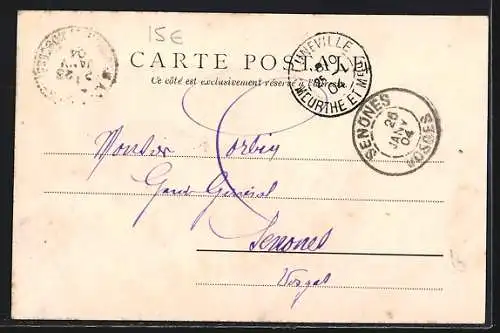 15E
CARTE POSTALE
Ce côté est exclusivement réservé à l'adresse
LUNEVILLE
MEURTHE ET M
04
SENONES
26
JANV
04
VOSGES
JANV
04
Monsieur Corbin
Garde Général
Senones
Vosges